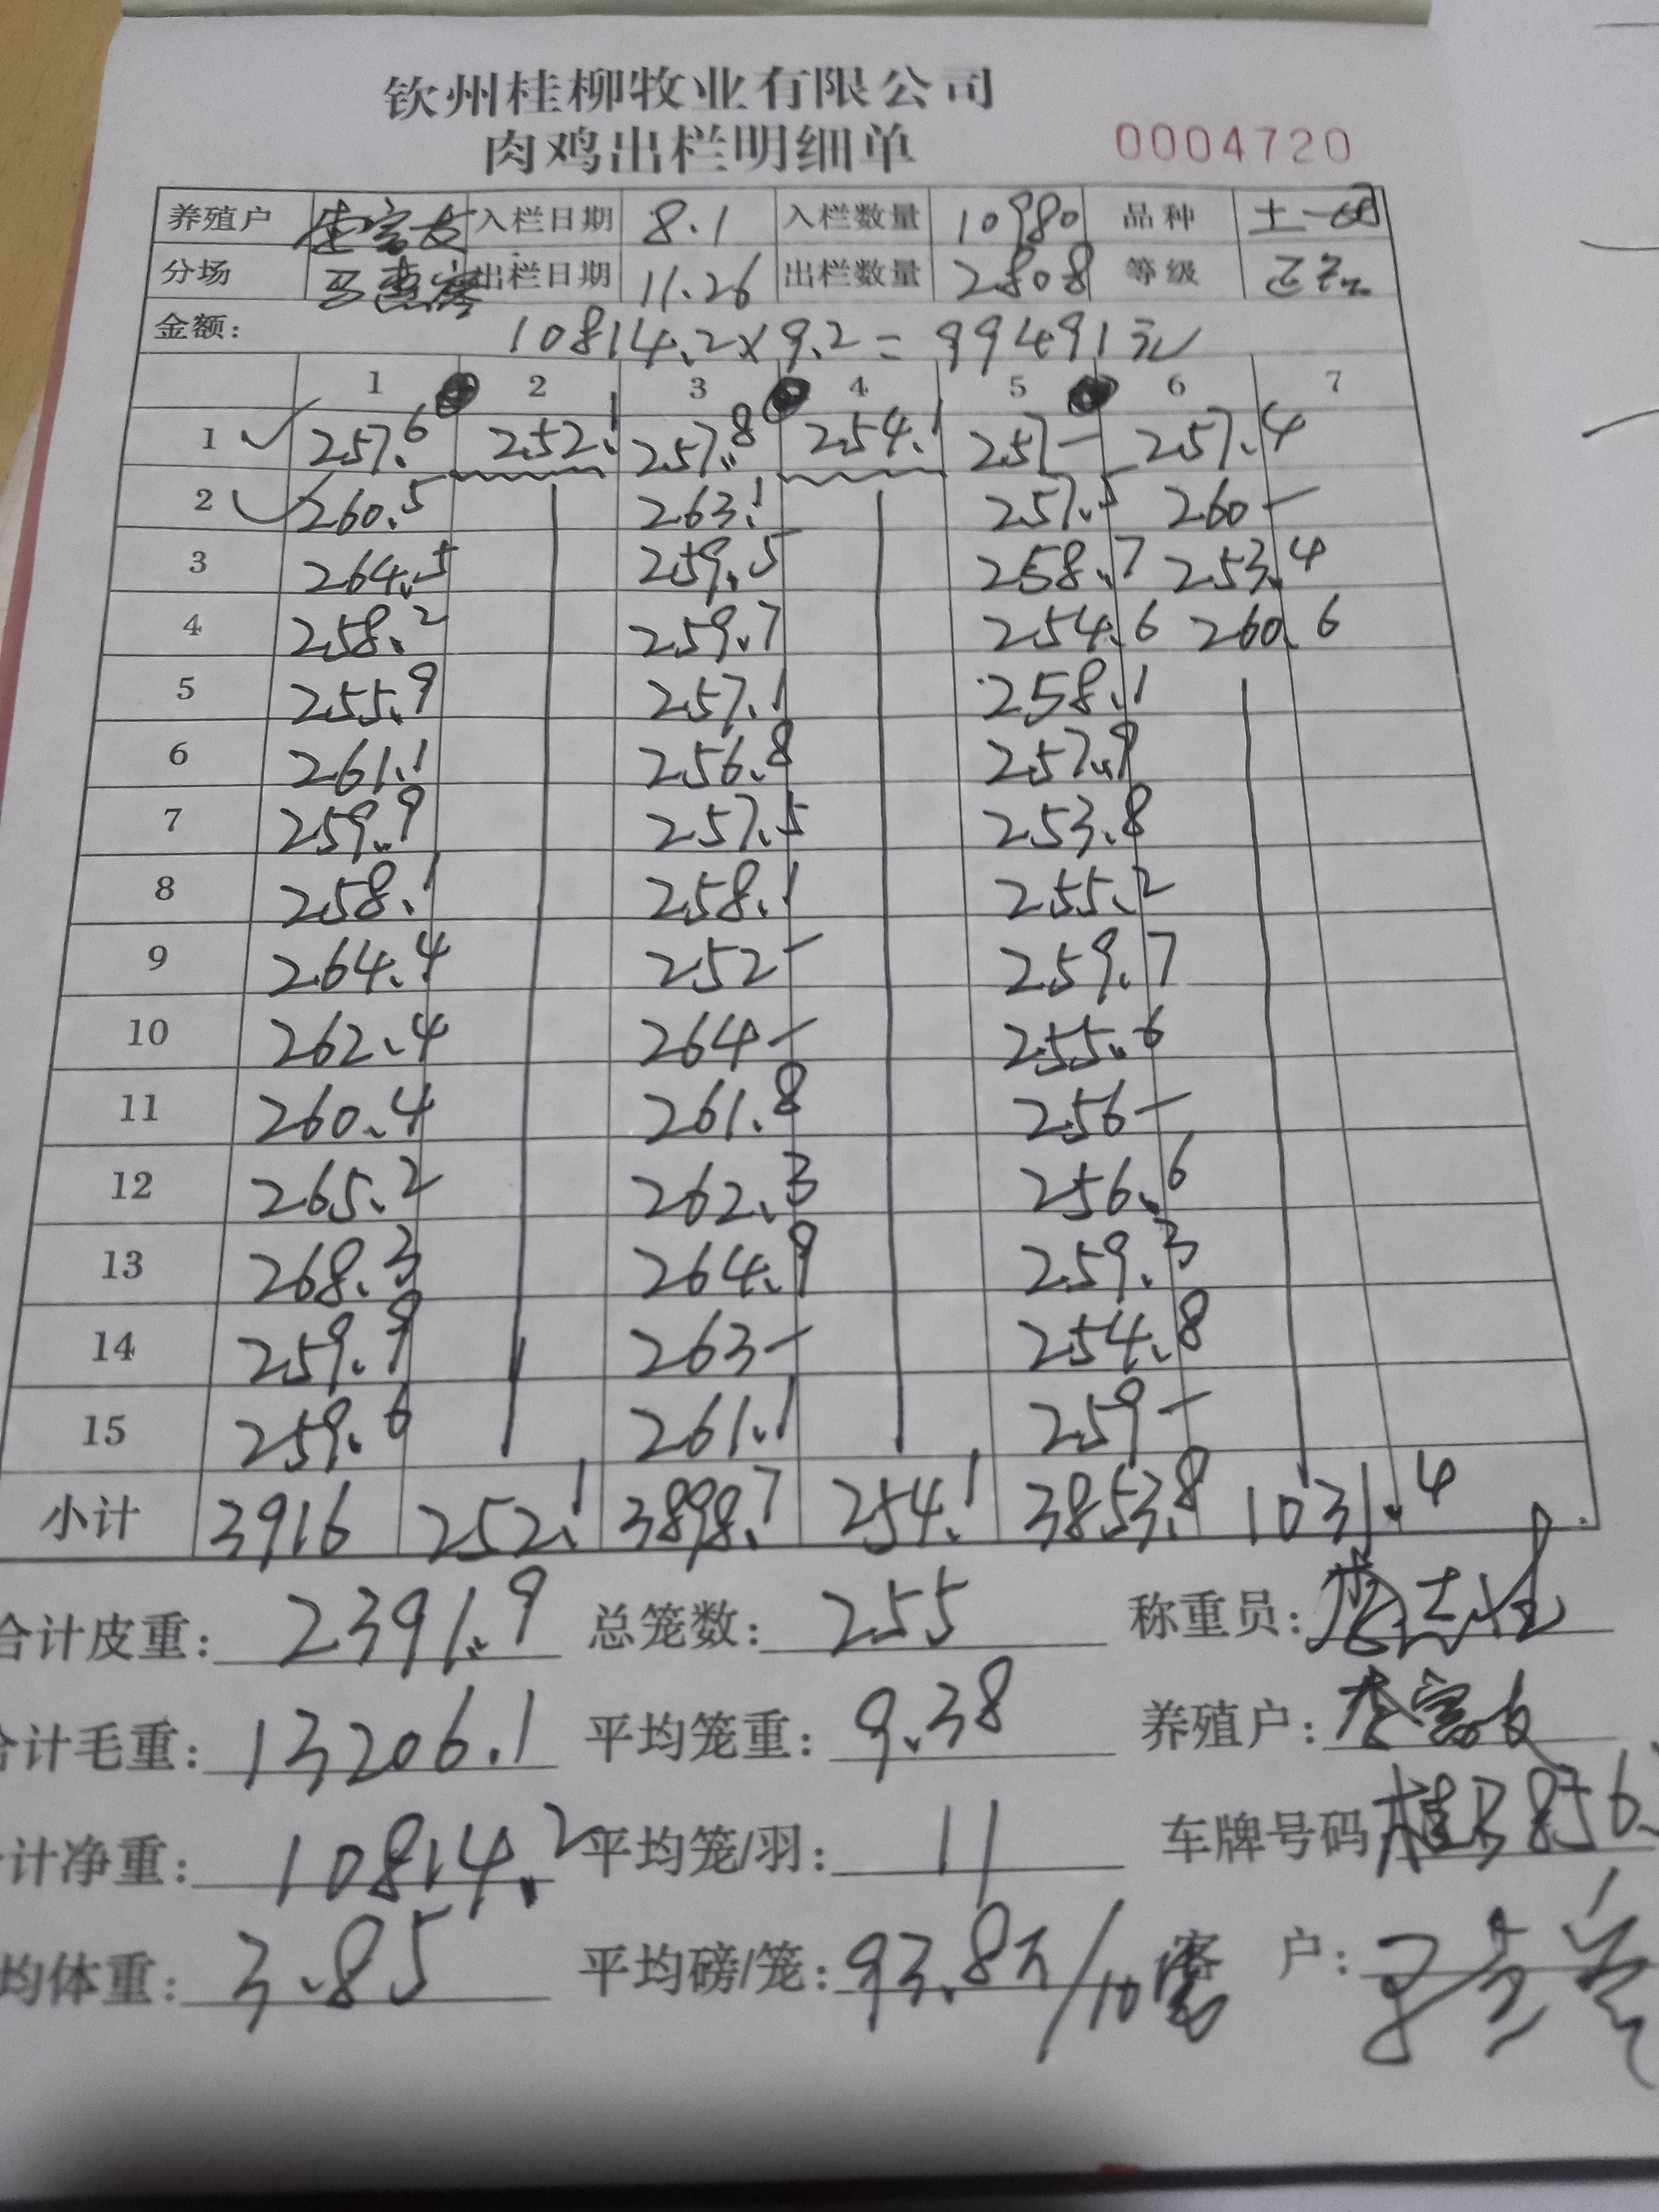 钦州桂柳牧业有限公司
肉鸡出栏明细单 0004720
养殖户 入栏日期 8.1 入栏数量 10980 品种 土一
分场 出栏日期 11.26 出栏数量 2808 等级
金额: 10814.2×9.2=99491元
1 2 3 4 5 6 7
1 257.6 252.1 257.8 254.1 257- 257.4
2 260.5 263.1 257.5 260-
3 264.5 259.5 258.7 253.4
4 258.2 259.7 254.6 260.6
5 255.9 257.1 258.1
6 261.1 256.8 257.9
7 259.9 257.5 253.8
8 258.1 258.1 255.2
9 264.4 252- 259.7
10 262.4 264- 255.6
11 260.4 261.8 256-
12 265.2 262.3 256.6
13 268.3 264.9 259.3
14 259.9 263- 254.8
15 259.6 261.1 259-
小计 3916 252.1 3898.7 254.1 3853.8 1031.4
合计皮重: 2391.9 总笼数: 255 称重员:
合计毛重: 13206.1 平均笼重: 9.38 养殖户: 李富友
计净重: 10814.2 平均笼/羽: 11 车牌号码
均体重: 3.85 平均磅/笼: 93.8 /10 客 户: